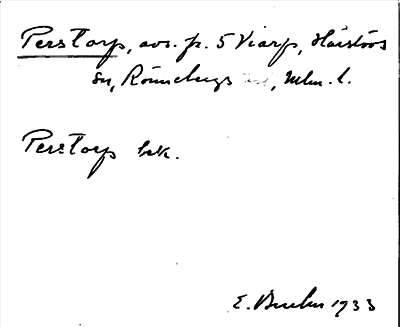 Perstorp, avs. fr. 5 Viarp, Hässlövs
sn, Rönnebergs hd, Mlm. l.
Perstorp bek.
E. 1933